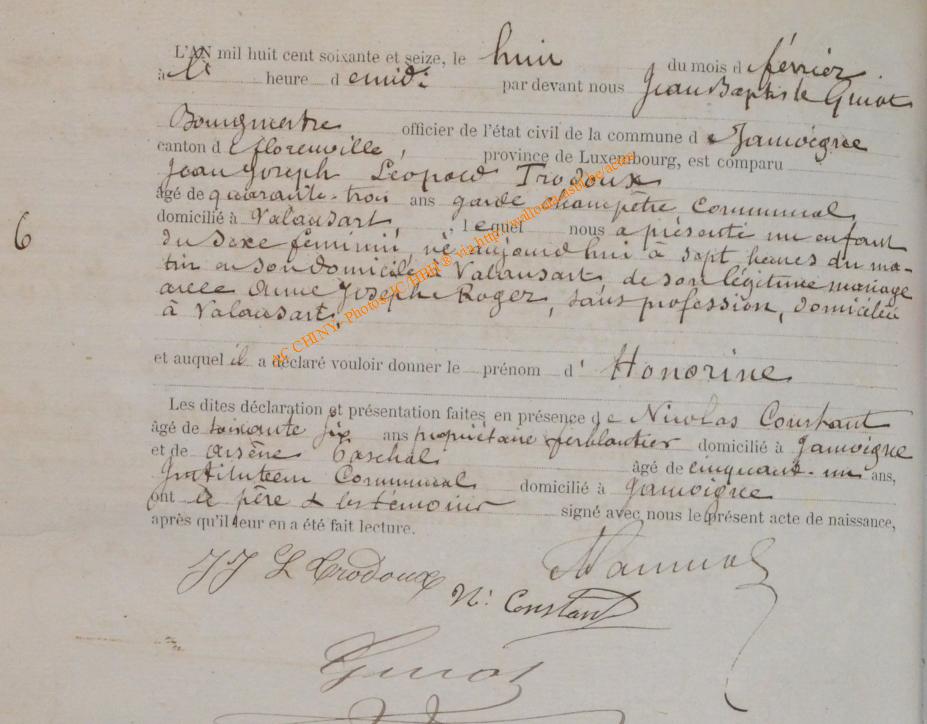 L'AN mil huit cent soixante et seize, le huit du mois d e février
à heure d e midi par devant nous Jean Baptiste Guiot
Bourgmestre officier de l'état civil de la commune d e Jamoigne
canton d e florenville, province de Luxembourg, est comparu
Jean Joseph Léopold Trodoux
âgé de quarante-trois ans garde champêtre Communal
domicilié à Valansart, lequel nous a présenté un enfant
6
du sexe féminin, né aujourd'hui à sept heures du ma-
tin en son domicile à Valansart, de son légitime mariage
avec Anne Joseph Roger, sans profession, domiciliée
à Valansart,
et auquel il a déclaré vouloir donner le prénom d' Honorine
Les dites déclaration et présentation faites en présence de Nicolas Constant
âgé de soixante six ans propriétaire ferblantier domicilié à Jamoigne
et de Arsène Paschal âgé de cinquante-un ans,
Instituteur Communal domicilié à Jamoigne
ont le père & les témoins signé avec nous le présent acte de naissance,
après qu'il leur en a été fait lecture.
JJ L Trodoux
N. Constant
Guiot
AC CHINY, Photos JC HBH © via http://wallonia-asbl.be/actes